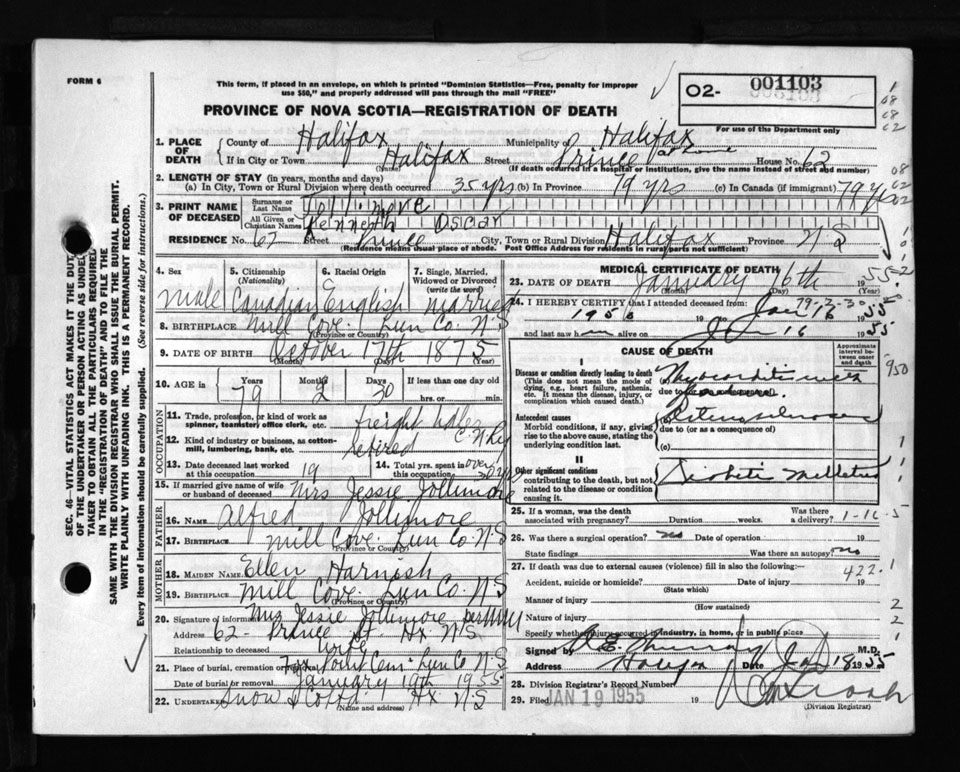 FORM 6
This form, if placed in an envelope, on which is printed "Dominion Statistics—Free, penalty for improper
use $50," and properly addressed will pass through the mail "FREE"
02- 001103
For use of the Department only
PROVINCE OF NOVA SCOTIA—REGISTRATION OF DEATH
1. PLACE OF DEATH
County of Halifax Municipality of Halifax
If in City or Town Halifax Street Prince at home House No. 62
(Name) (If death occurred in a hospital or institution, give the name instead of street and number)
2. LENGTH OF STAY (in years, months and days)
(a) In City, Town or Rural Division where death occurred 35 yrs (b) In Province 79 yrs (c) In Canada (if immigrant) 79 yrs
3. PRINT NAME OF DECEASED
Surname or Last Name Jollimore
All Given or Christian Names Kenneth Oscar
RESIDENCE No. 62 Street Prince City, Town or Rural Division Halifax Province N S
(Residence means usual place of abode. Post Office Address for residents in rural parts not sufficient)
4. Sex
Male
5. Citizenship (Nationality)
Canadian
6. Racial Origin
English
7. Single, Married, Widowed or Divorced (write the word)
Married
8. BIRTHPLACE Mill Cove Lun Co. N S
(Province or Country)
9. DATE OF BIRTH October 17th 1875
(Month) (Day) (Year)
10. AGE in Years Months Days If less than one day old
79 2 30 hrs. or min.
OCCUPATION
11. Trade, profession, or kind of work as
spinner, teamster, office clerk, etc. freight hdler
12. Kind of industry or business, as cotton-
mill, lumbering, bank, etc. retired
13. Date deceased last worked
at this occupation 19
14. Total yrs. spent in
this occupation over
15. If married give name of wife
or husband of deceased Mrs Jessie Jollimore
FATHER
16. NAME Alfred Jollimore
17. BIRTHPLACE Mill Cove Lun Co. N. S
(Province or Country)
MOTHER
18. MAIDEN NAME Ellen Harnish
19. BIRTHPLACE Mill Cove Lun Co. N S
(Province or Country)
20. Signature of informant Mrs Jessie Jollimore
Address 62 - Prince St. Hx N S
Relationship to deceased wife
21. Place of burial, cremation or Point Cem. Lun Co N S
Date of burial or removal January 19th 1955
22. UNDERTAKER Snow & Co Hx N S
(Name and address)
MEDICAL CERTIFICATE OF DEATH
23. DATE OF DEATH January 16th 1955
(Month) (Day)
79-2-30
24. I HEREBY CERTIFY that I attended deceased from
1950 19 to Jan 16 1955
and last saw him alive on Ja 16 1955
CAUSE OF DEATH
Approximate interval between onset and death
I
Disease or condition directly leading to death
(This does not mean the mode of dying, e.g., heart failure, asthenia, etc. It means the disease, injury, or complication which caused death.)
(a) Myocarditis
due to (or as a consequence of)
Antecedent causes
Morbid conditions, if any, giving rise to the above cause, stating the underlying condition last.
(b) Arteriosclerosis
due to (or as a consequence of)
(c)
II
Other significant conditions
contributing to the death, but not related to the disease or condition causing it.
Diabetes Mellitus
25. If a woman, was the death
associated with pregnancy? Duration weeks. Was there a delivery? 1-16-5
26. Was there a surgical operation? no Date of operation 19
State findings Was there an autopsy? no
27. If death was due to external causes (violence) fill in also the following:— 422.1
Accident, suicide or homicide? Date of injury 19
(State which)
Manner of injury
(How sustained)
Nature of injury
Specify whether injury occurred in industry, in home, or in public place
Signed by E. Murray M.D.
Address Halifax Date Jan 18 1955
28. Division Registrar's Record Number
29. Filed JAN 19 1955 19
(Division Registrar)
SEC. 46—VITAL STATISTICS ACT MAKES IT THE DUTY
OF THE UNDERTAKER OR PERSON ACTING AS UNDER-
TAKER TO OBTAIN ALL THE PARTICULARS REQUIRED
IN THE "REGISTRATION OF DEATH" AND TO FILE THE
SAME WITH THE DIVISION REGISTRAR WHO SHALL ISSUE THE BURIAL PERMIT.
WRITE PLAINLY WITH UNFADING INK. THIS IS A PERMANENT RECORD.
Every item of information should be carefully supplied. (See reverse side for instructions.)